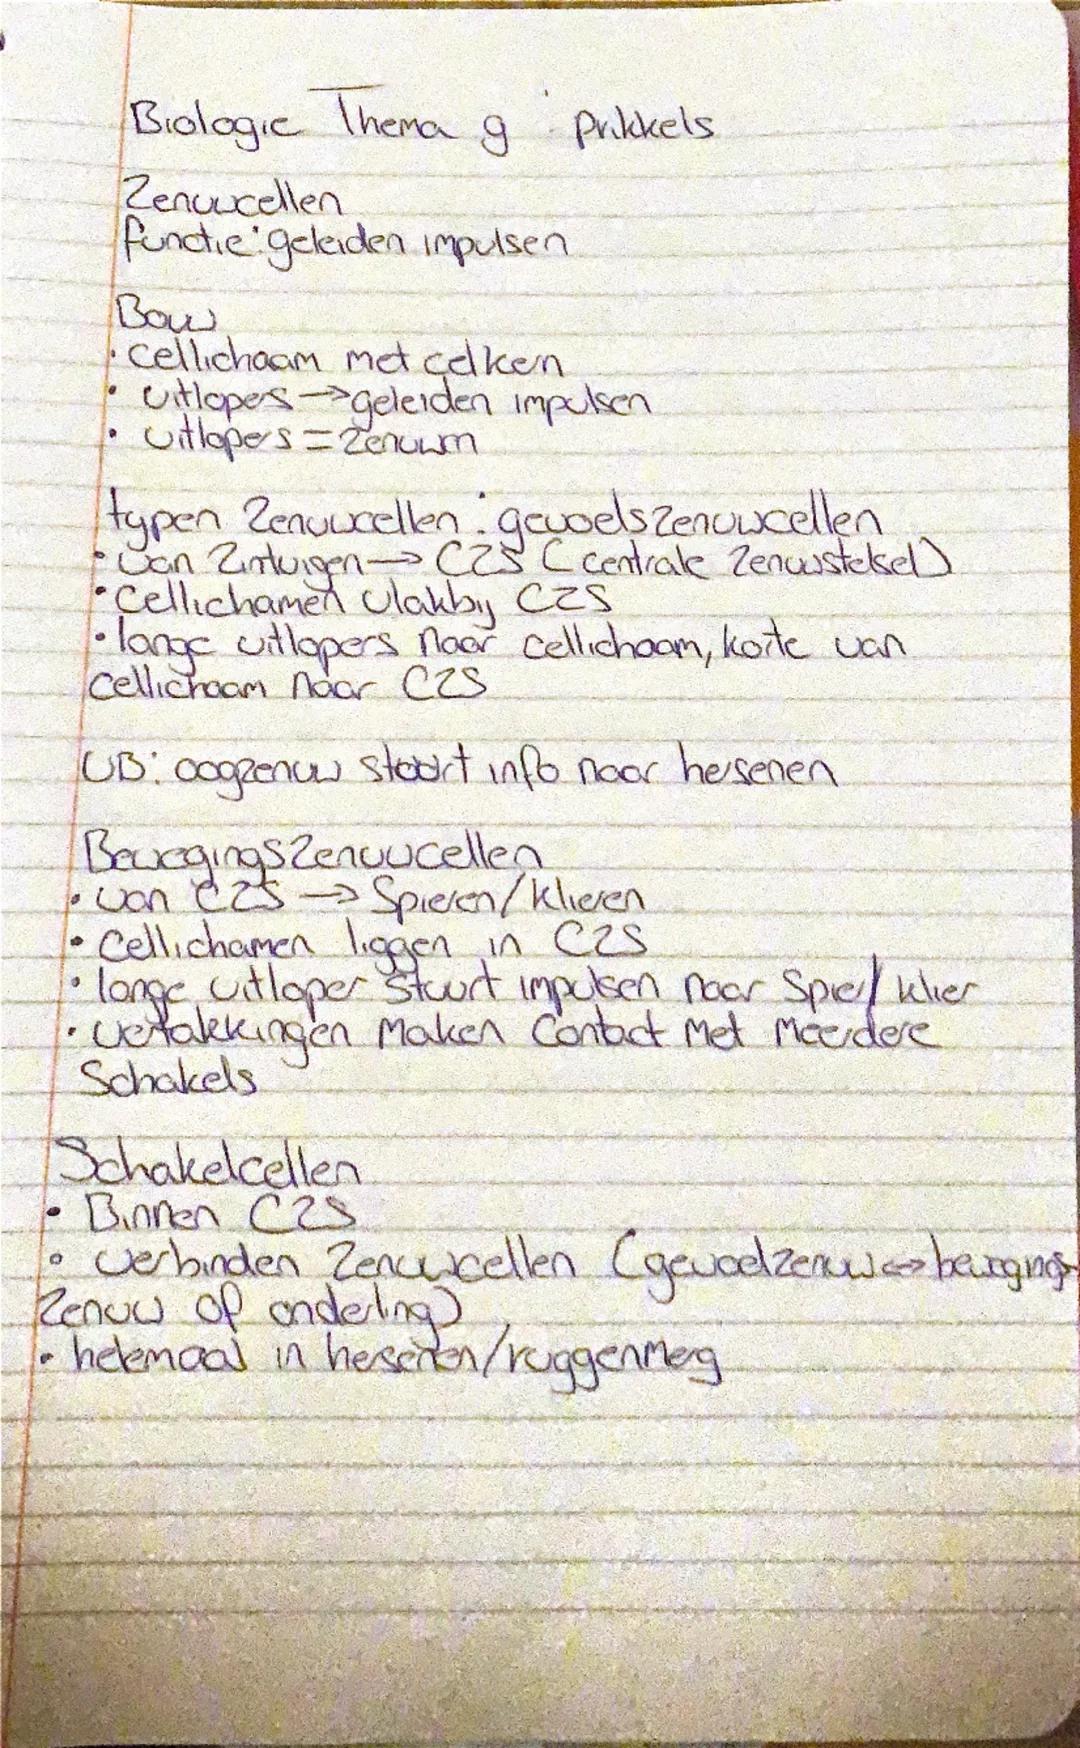 Biologie Thema 9 : prikkels
Zenuwcellen
functie: geleiden impulsen
Bouw
• cellichaam met celkern
• uitlopers → geleiden impulsen
• uitlopers = zenuwn
typen Zenuwcellen : gevoelszenuwcellen
• van Zintuigen → CZS (centrale Zenuwstelsel)
• Cellichamen vlakbij CZS
• lange uitlopers naar cellichaam, korte van
cellichaam naar CZS
VB: oogzenuw stuurt info naar hersenen
Bewegingszenuwcellen
• van CZS → Spieren/klieren
• Cellichamen liggen in CZS
• lange uitloper stuurt impulsen naar Spier/klier
• vertakkingen maken Contact met meerdere
Schakels
Schakelcellen
• Binnen CZS
• verbinden Zenuwcellen (gevoelzenuw ↔ bewegings-
Zenuw of onderling)
• helemaal in hersenen/ruggenmerg